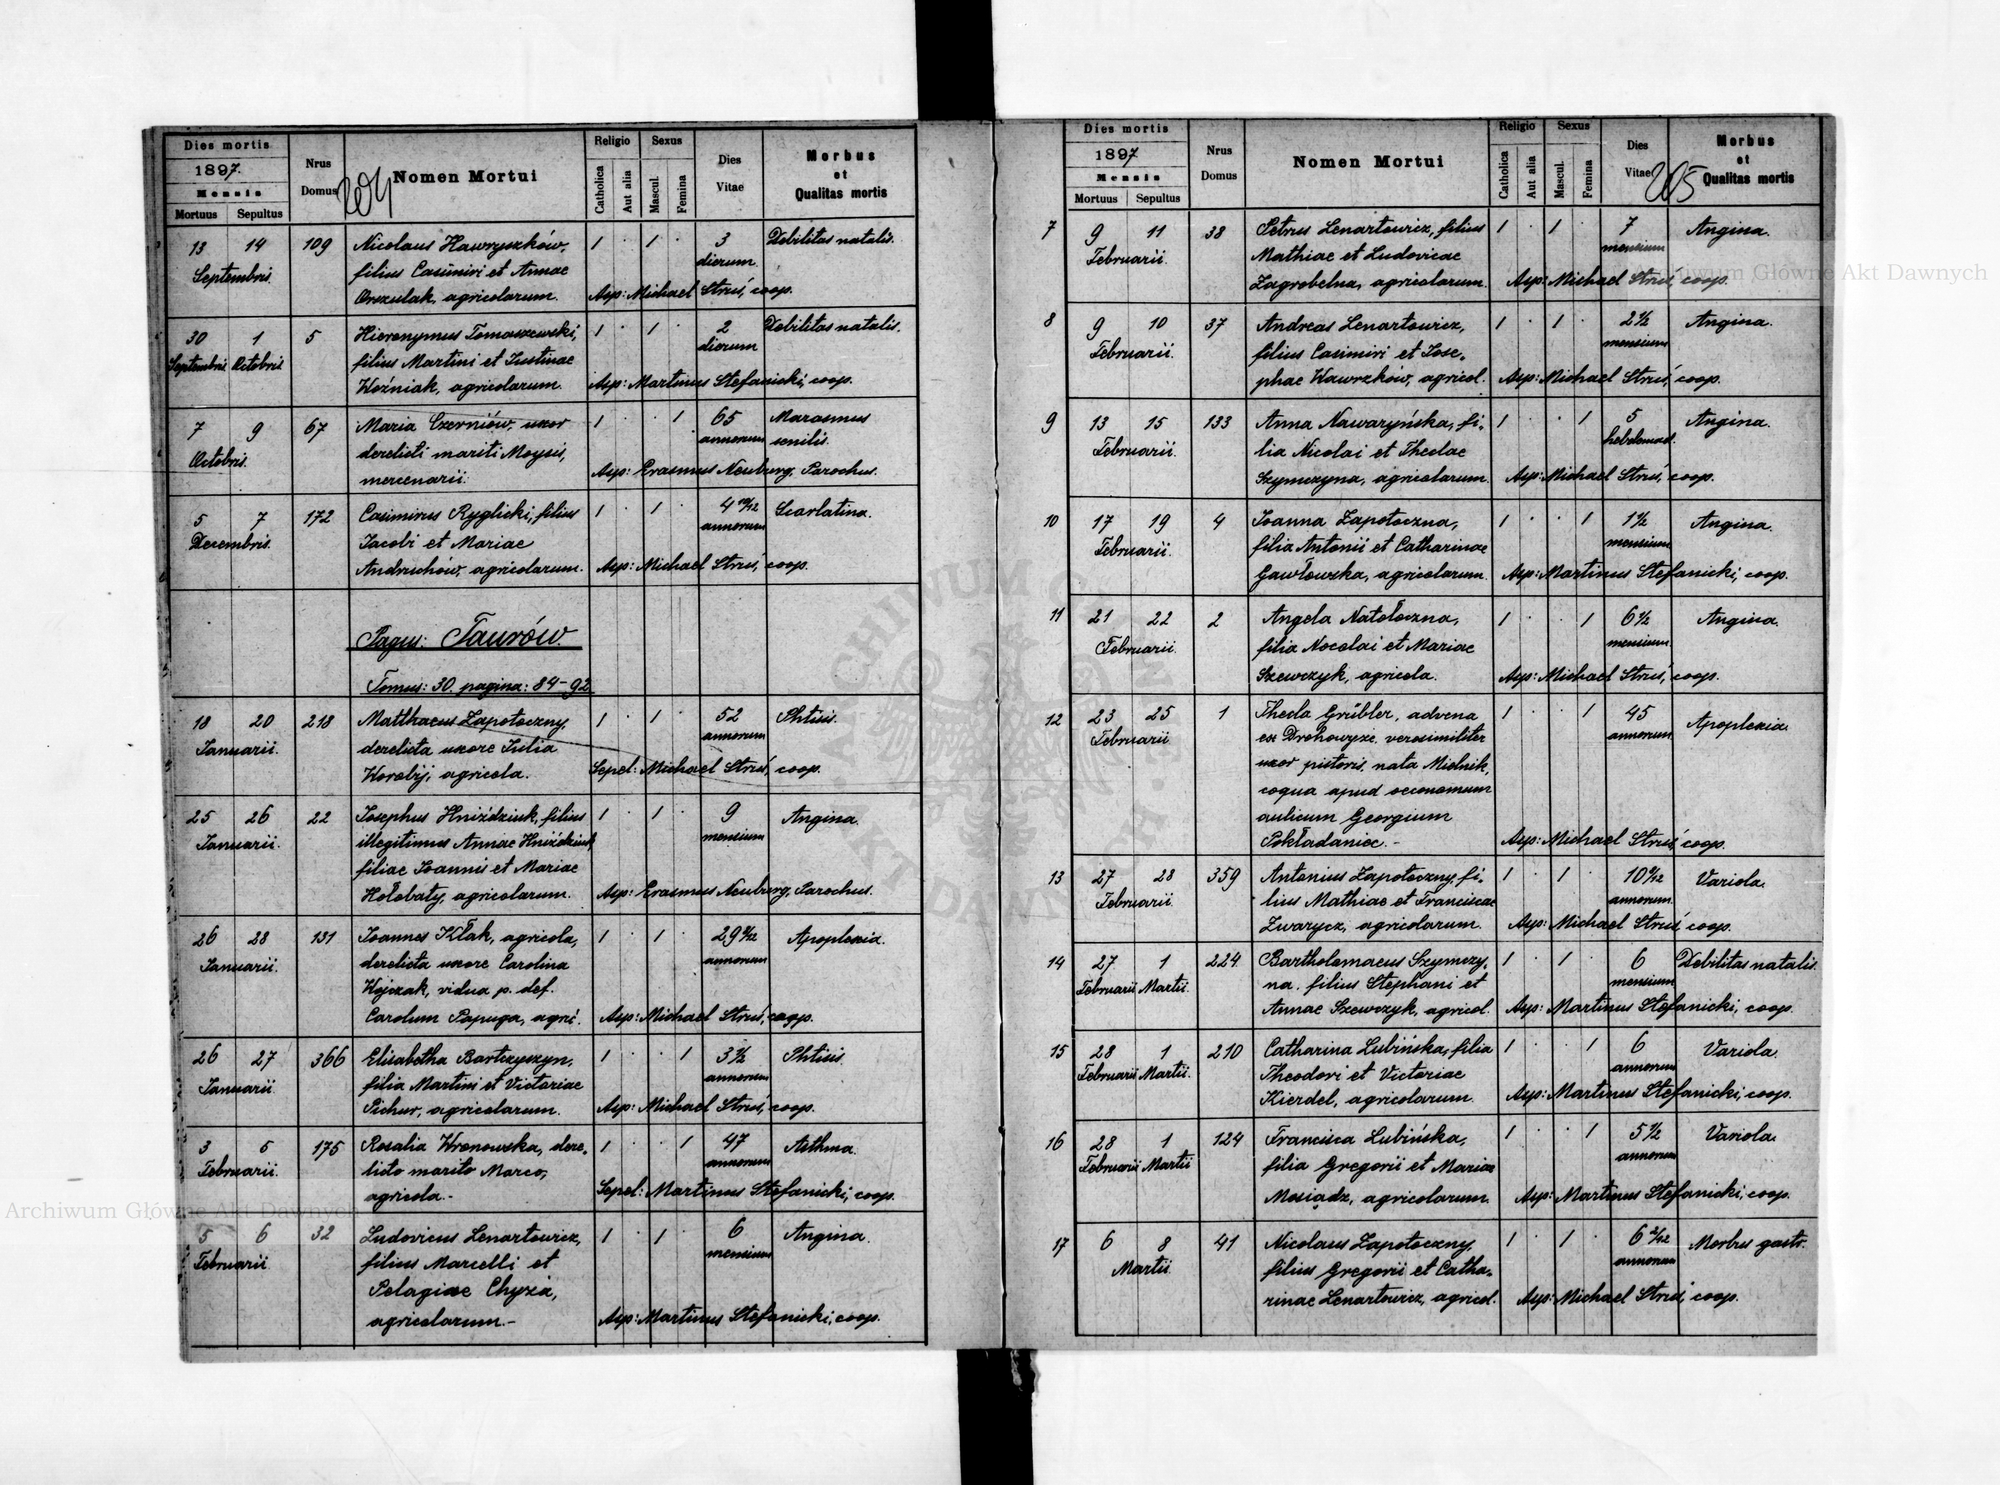 Dies mortis
1897.
Mensis
Mortuus Sepultus
Nrus
Domus
204
Nomen Mortui
Religio
Catholica
Aut alia
Sexus
Mascul.
Femina
Dies
Vitae
Morbus
et
Qualitas mortis
13 14 109 Nicolaus Hawryszków, 1 · 1 · 3 Debilitas natalis.
Septembris. filius Casimiri et Annae dierum
Orszulak, agricolarum. Asp: Michael Struś, coop.
30 1 5 Hieronymus Tomaszewski, 1 · 1 · 2 Debilitas natalis.
Septembris Octobris filius Martini et Justinae dierum
Woźniak, agricolarum. Asp: Martinus Stefanicki, coop.
7 9 67 Maria Czerniów, uxor 1 · · 1 65 Marasmus
Octobris. derelicti mariti Moysis, annorum senilis.
mercenarii. Asp: Erasmus Neuburg, Parochus.
5 7 172 Casimirus Ryglicki, filius 1 · 1 · 4 10/12 Scarlatina.
Decembris. Jacobi et Mariae annorum
Andruchów, agricolarum. Asp: Michael Struś, coop.
Pagus: Taurów.
Tomus: 30. pagina: 84-92
18 20 218 Matthaeus Zapotoczny, 1 · 1 · 52 Phtisis.
Januarii. derelicta uxore Julia annorum
Worobij, agricola. Sepel: Michael Struś, coop.
25 26 22 Josephus Hniździuk, filius 1 · 1 · 9 Angina.
Januarii. illegitimus Annae Hniździuk, mensium
filiae Joannis et Mariae
Hołobaty, agricolarum. Asp: Erasmus Neuburg, Parochus.
26 28 131 Joannes Kłak, agricola, 1 · 1 · 29 Apoplexia.
Januarii. derelicta uxore Carolina annorum
Wojczak, vidua p. def.
Carolum Papuga, agri. Asp: Michael Struś, coop.
26 27 366 Elisabetha Bartczyszyn, 1 · · 1 3 1/2 Phtisis
Januarii filia Martini et Victoriae annorum
Pichur, agricolarum. Asp: Michael Struś, coop.
3 5 175 Rosalia Wronowska, dere- 1 · · 1 47 Asthma.
Februarii. licto marito Marco, annorum
agricola.- Sepel: Martinus Stefanicki, coop.
5 6 32 Ludovicus Lenartowicz, 1 · 1 · 6 Angina.
Februarii filius Marcelli et mensium
Pelagiae Chyża,
agricolarum.- Asp: Martinus Stefanicki, coop.
Dies mortis
1897
Mensis
Mortuus Sepultus
Nrus
Domus
Nomen Mortui
Religio
Catholica
Aut alia
Sexus
Mascul.
Femina
Dies
Vitae
205
Morbus
et
Qualitas mortis
7 9 11 38 Petrus Lenartowicz, filius 1 · 1 · 7 Angina.
Februarii. Mathiae et Ludovicae mensium
Zagrobelna, agricolarum. Asp: Michael Struś, coop.
8 9 10 37 Andreas Lenartowicz, 1 · 1 · 2 1/2 Angina.
Februarii. filius Casimiri et Jose- mensium
phae Wawrzków, agricol. Asp: Michael Struś, coop.
9 13 15 133 Anna Nawaryńska, fi- 1 · · 1 5 Angina.
Februarii. lia Nicolai et Theclae hebdomad.
Szymczyna, agricolarum. Asp: Michael Struś, coop.
10 17 19 4 Joanna Zapotoczna, 1 · · 1 1 1/2 Angina.
Februarii. filia Antonii et Catharinae mensium
Gawłowska, agricolarum. Asp: Martinus Stefanicki, coop.
11 21 22 2 Angela Natołoczna, 1 · · 1 6 1/2 Angina.
Februarii. filia Nocolai et Mariae mensium
Szewczyk, agricola. Asp: Michael Struś, coop.
12 23 25 1 Thecla Grübler, advena 1 · · 1 45 Apoplexia.
Februarii ex Drohowyże, verosimiliter annorum
uxor pistoris, nata Mielnik,
coqua apud oeconomum
aulicum Georgium
Pokładaniec.- Asp: Michael Struś, coop.
13 27 28 359 Antonius Zapotoczny, fi- 1 · 1 · 10 Variola.
Februarii. lius Mathiae et Franciscae annorum
Zwarycz, agricolarum. Asp: Michael Struś, coop.
14 27 1 224 Bartholomaeus Szymczy- 1 · 1 · 6 Debilitas natalis.
Februarii Martii. na, filius Stephani et mensium
Annae Szewczyk, agricol. Asp: Martinus Stefanicki, coop.
15 28 1 210 Catharina Lubińska, filia 1 · · 1 6 Variola.
Februarii Martii. Theodori et Victoriae annorum
Kierdel, agricolarum. Asp: Martinus Stefanicki, coop.
16 28 1 124 Francisca Lubińska, 1 · · 1 5 1/2 Variola.
Februarii Martii filia Gregorii et Mariae annorum
Mosiądz, agricolarum. Asp: Martinus Stefanicki, coop.
17 6 8 41 Nicolaus Zapotoczny, 1 · 1 · 6 Morbus gastr.
Martii. filius Gregorii et Catha- annorum
rinae Lenartowicz, agricol. Asp: Michael Struś, coop.
Archiwum Główne Akt Dawnych
Archiwum Główne Akt Dawnych